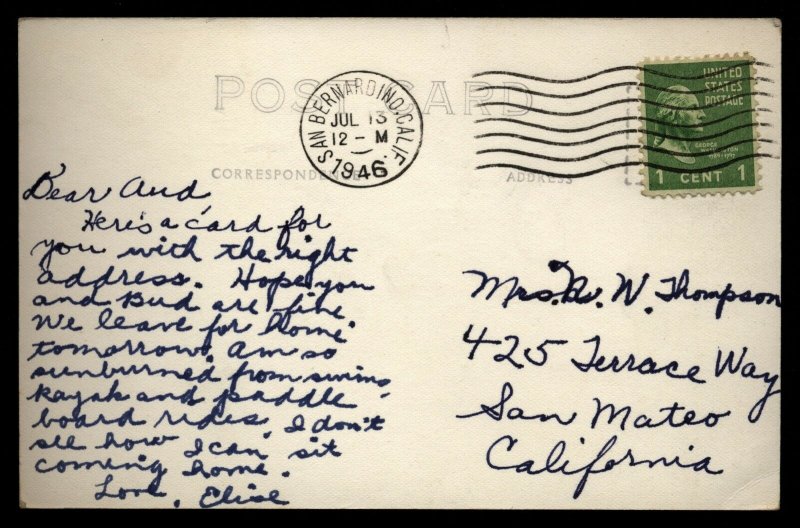 POST CARD
SAN BERNARDINO, CALIF.
JUL 13
12 - M
1946
UNITED
STATES
POSTAGE
GEORGE
WASHINGTON
1 CENT 1
CORRESPONDENCE
ADDRESS
Dear Aud,
Here's a card for
you with the right
address. Hope you
and Bud are fine.
We leave for home
tomorrow. Am so
sunburned from swim,
kayak and paddle
board rides, I don't
see how I can sit
coming home.
Love, Elise
Mrs. W. Thompson
425 Terrace Way
San Mateo
California